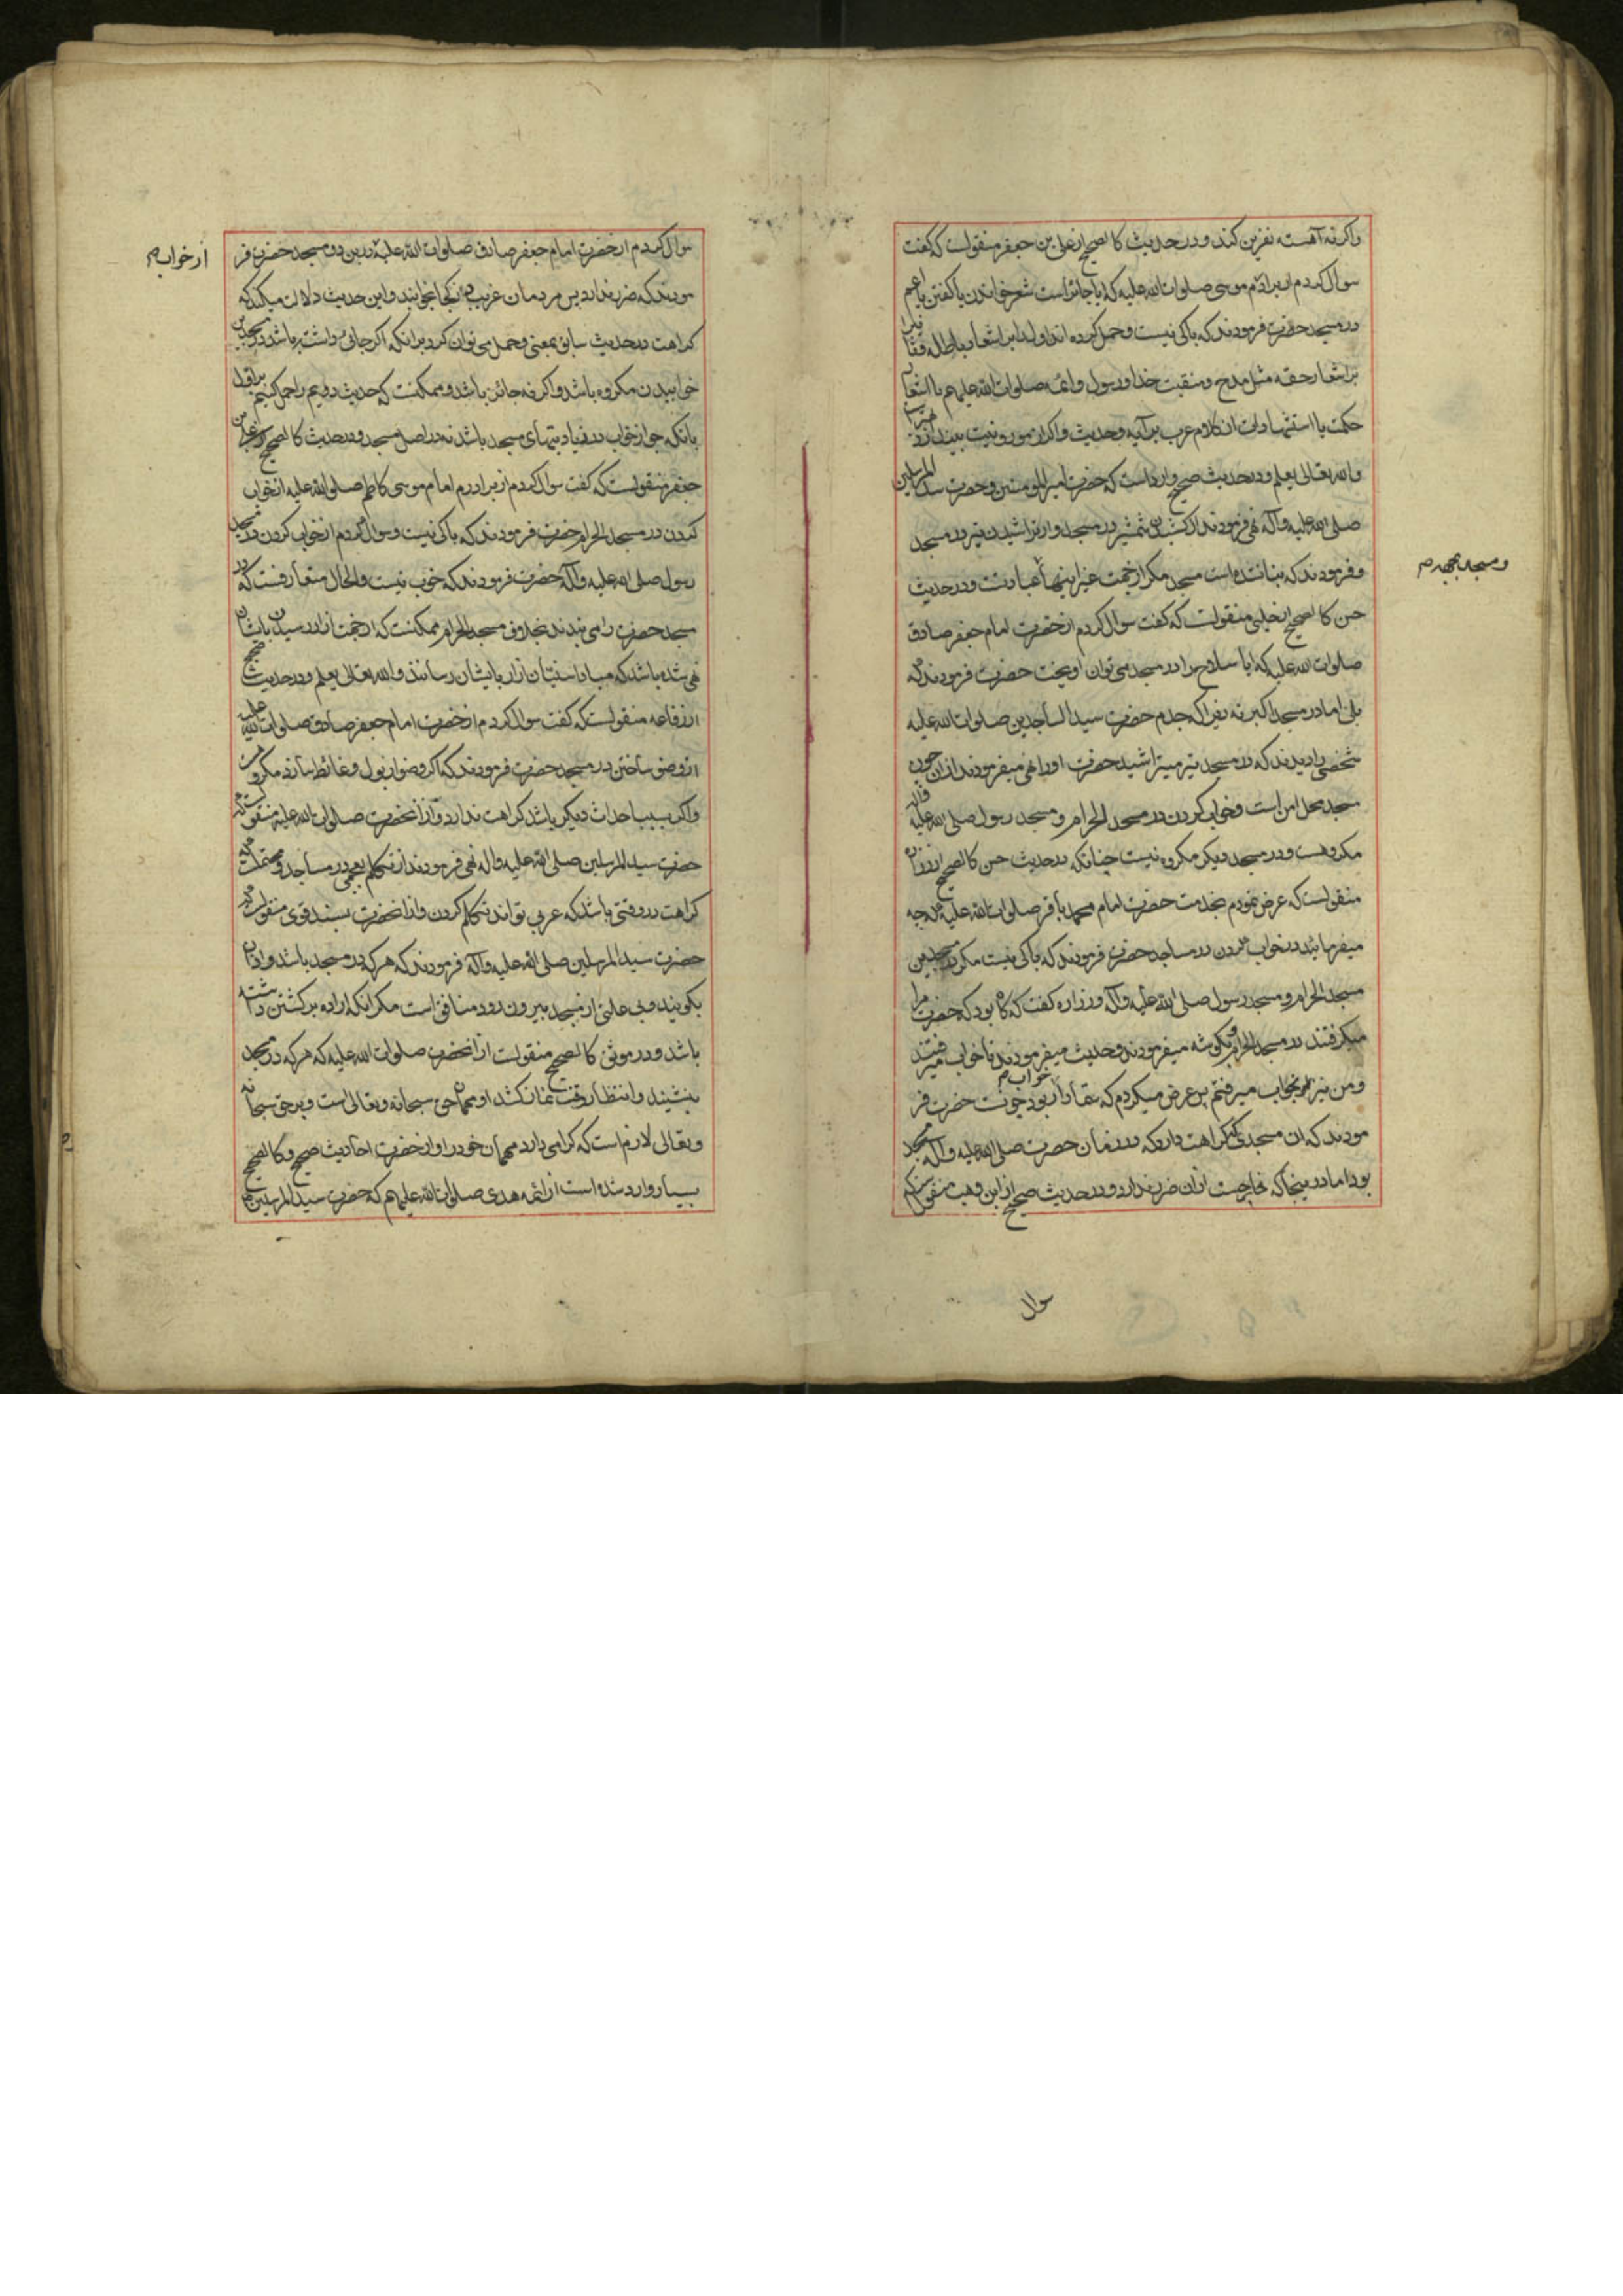 و اکر نه آهسته نفرین کند و در حدیث کالصحیح از علی بن جعفر منقولست که کفت
سوال کردم از برادرم موسی صلوات الله علیه که ایا جائز است شعر خواندن یا کفتن
در مسجد حضرت فرمودند که باکی نیست و حمل کرده اند اول را بر اشعار باطله
بر اشعار حقه مثل مدح و منقبت خدا و رسول و ائمه صلوات الله علیهم یا اشعار
حکمت یا استشهادات از کلام عرب بر آیه و حدیث و اکر ازین مورد نیست
والله تعالی یعلم و در حدیث صحیح وارد است که حضرت امیر المومنین و حضرت سید المرسلین
صلی الله علیه و آله نهی فرمودند از کشیدن شمشیر در مسجد و از تراشیدن تیر در مسجد
و مسجد
و فرمودند که بنا نشده است مسجد مکر از جهت غیر اینها عبادتست و در حدیث
حسن کالصحیح از حلبی منقولست که کفت سوال کردم از حضرت امام جعفر صادق
صلوات الله علیه که ایا سلاح را در مسجد می توان اویخت حضرت فرمودند که
بلی اما در مسجد اکبر نه زیرا که جدم حضرت سید الساجدین صلوات الله علیه
شخصی را دیدند که در مسجد تیر میتراشید حضرت او را نهی میفرمودند از ان چون
مسجد محل امن است و خواب کردن در مسجد الحرام و مسجد رسول صلی الله علیه و آله
مکروهست و در مسجد دیکر مکروه نیست چنانکه در حدیث حسن کالصحیح از زراره
منقولست که عرض نمودم بخدمت حضرت امام محمد باقر صلوات الله علیه که چه
میفرمائید در خواب کردن در مساجد حضرت فرمودند که باکی نیست مکر در مسجدین
مسجد الحرام و مسجد رسول صلی الله علیه و آله و زراره کفت که کاه بود که حضرت مرا
میکرفتند در مسجد الحرام و بکوشه میفرمودند و حدیث میفرمودند تا خواب میرفتند
و من نیز بخواب میرفتم پس عرض میکردم که شما را خواب بود چونست حضرت فر
مودند که ان مسجدی کراهت دارد که در زمان حضرت صلی الله علیه و آله مسجد
بود اما در ینجا که خارجست از ان ضرر ندارد و در حدیث صحیح از ابن وهب منقولست که
سوال
سوال کردم از حضرت امام جعفر صادق صلوات الله علیه در مسجد حضرت فر
از خواب
مودند که ضرر ندارد پس مردمان غریب در کجا بخوابند و این حدیث دلالت میکند که
کراهت در حدیث سابق بمعنی و حمل می توان کرد بر انکه اکر جائی داشته باشد در مسجدین
خوابیدن مکروه باشد و اکر نه جائز باشد و ممکنست که حدیث دویم را حمل کنیم بر اول
بانکه جواز خواب در زیادیتهای مسجد باشد نه در اصل مسجد و در حدیث کالصحیح از علی بن
جعفر منقولست که کفت سوال کردم از برادرم امام موسی کاظم صلوات الله علیه از خواب
کردن در مسجد الحرام حضرت فرمودند که باکی نیست و سوال کردم از خواب کردن در مسجد
رسول صلی الله علیه و آله حضرت فرمودند که خوب نیست و الحال متعارفست که در
مسجد حضرت را می بندند بخلاف مسجد الحرام ممکنست که از جهت ازار رسیدن بایشان
نهی شده باشد که مبادا سنیان ازار بایشان رسانند والله تعالی یعلم و در حدیث صحیح
از رفاعه منقولست که کفت سوال کردم از حضرت امام جعفر صادق صلوات الله علیه
از وضو ساختن در مسجد حضرت فرمودند که اکر وضو از بول و غائط سازد مکروهست
و اکر بسبب احداث دیکر باشد کراهت ندارد و از انحضرت صلوات الله علیه منقولست که
حضرت سید المرسلین صلی الله علیه و اله نهی فرمودند از تکلم بعجمی در مساجد و
کراهت در وقتی باشد که عربی تواند تکلم کردن و از انحضرت بسند قوی منقولست که
حضرت سید المرسلین صلی الله علیه و آله فرمودند که هر که در مسجد باشد و اذان
بکویند و بی علتی از مسجد بیرون رود منافق است مکر انکه اراده برکشتن داشته
باشد و در موثق کالصحیح منقولست از انحضرت صلوات الله علیه که هر که در مسجد
بنشیند و انتظار وقت نماز کشد او مهمان حق سبحانه و تعالی است و بر حق سبحانه
و تعالی لازم است که کرامی دارد مهمان خود را و از حضرت احادیث صحیح و کالصحیح
بسیار وارد شده است از ائمه هدی صلوات الله علیهم که حضرت سید المرسلین